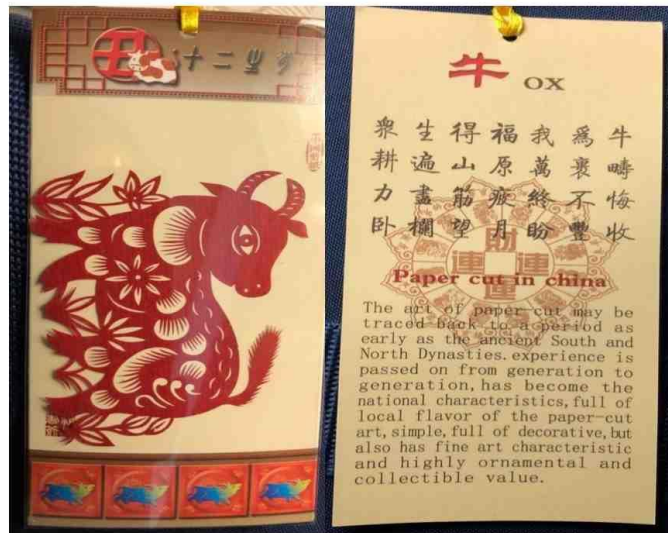 丑
十二生肖
牛 OX
衆生得福我為牛
耕遍山原萬裹疇
力盡筋疲終不悔
卧欄望月盼豐收
財運連連
Paper cut in china
The art of paper-cut may be
traced back to a period as
early as the ancient South and
North Dynasties.experience is
passed on from generation to
generation,has become the
national characteristics,full of
local flavor of the paper-cut
art,simple,full of decorative,but
also has fine art characteristic
and highly ornamental and
collectible value.